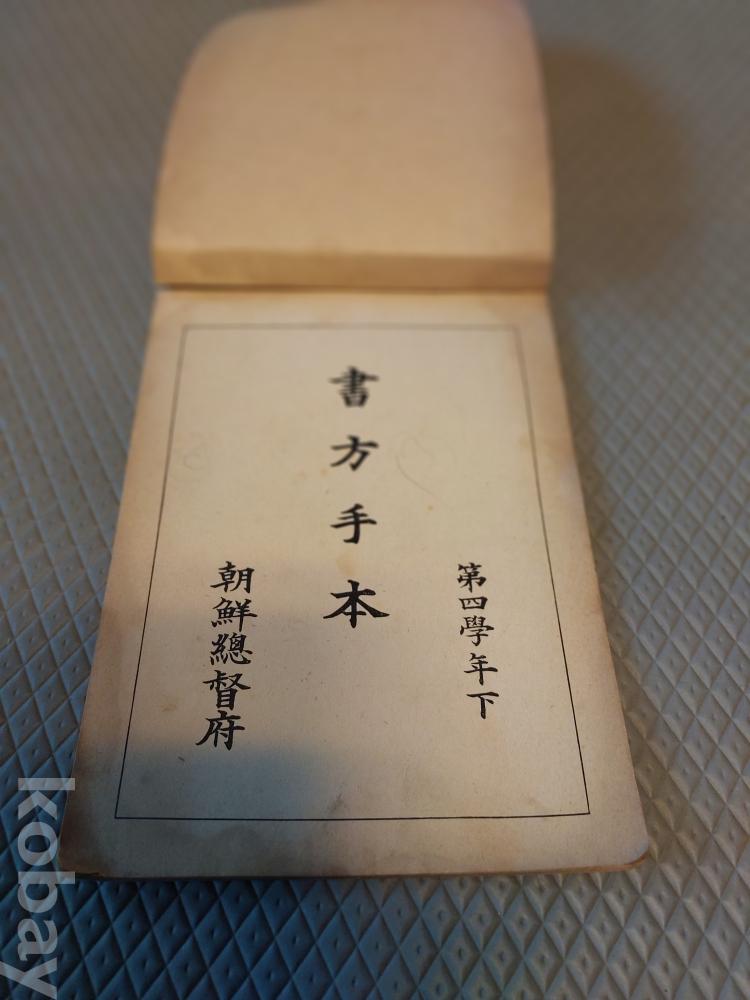 書方手本
第四學年下
朝鮮總督府
kobay